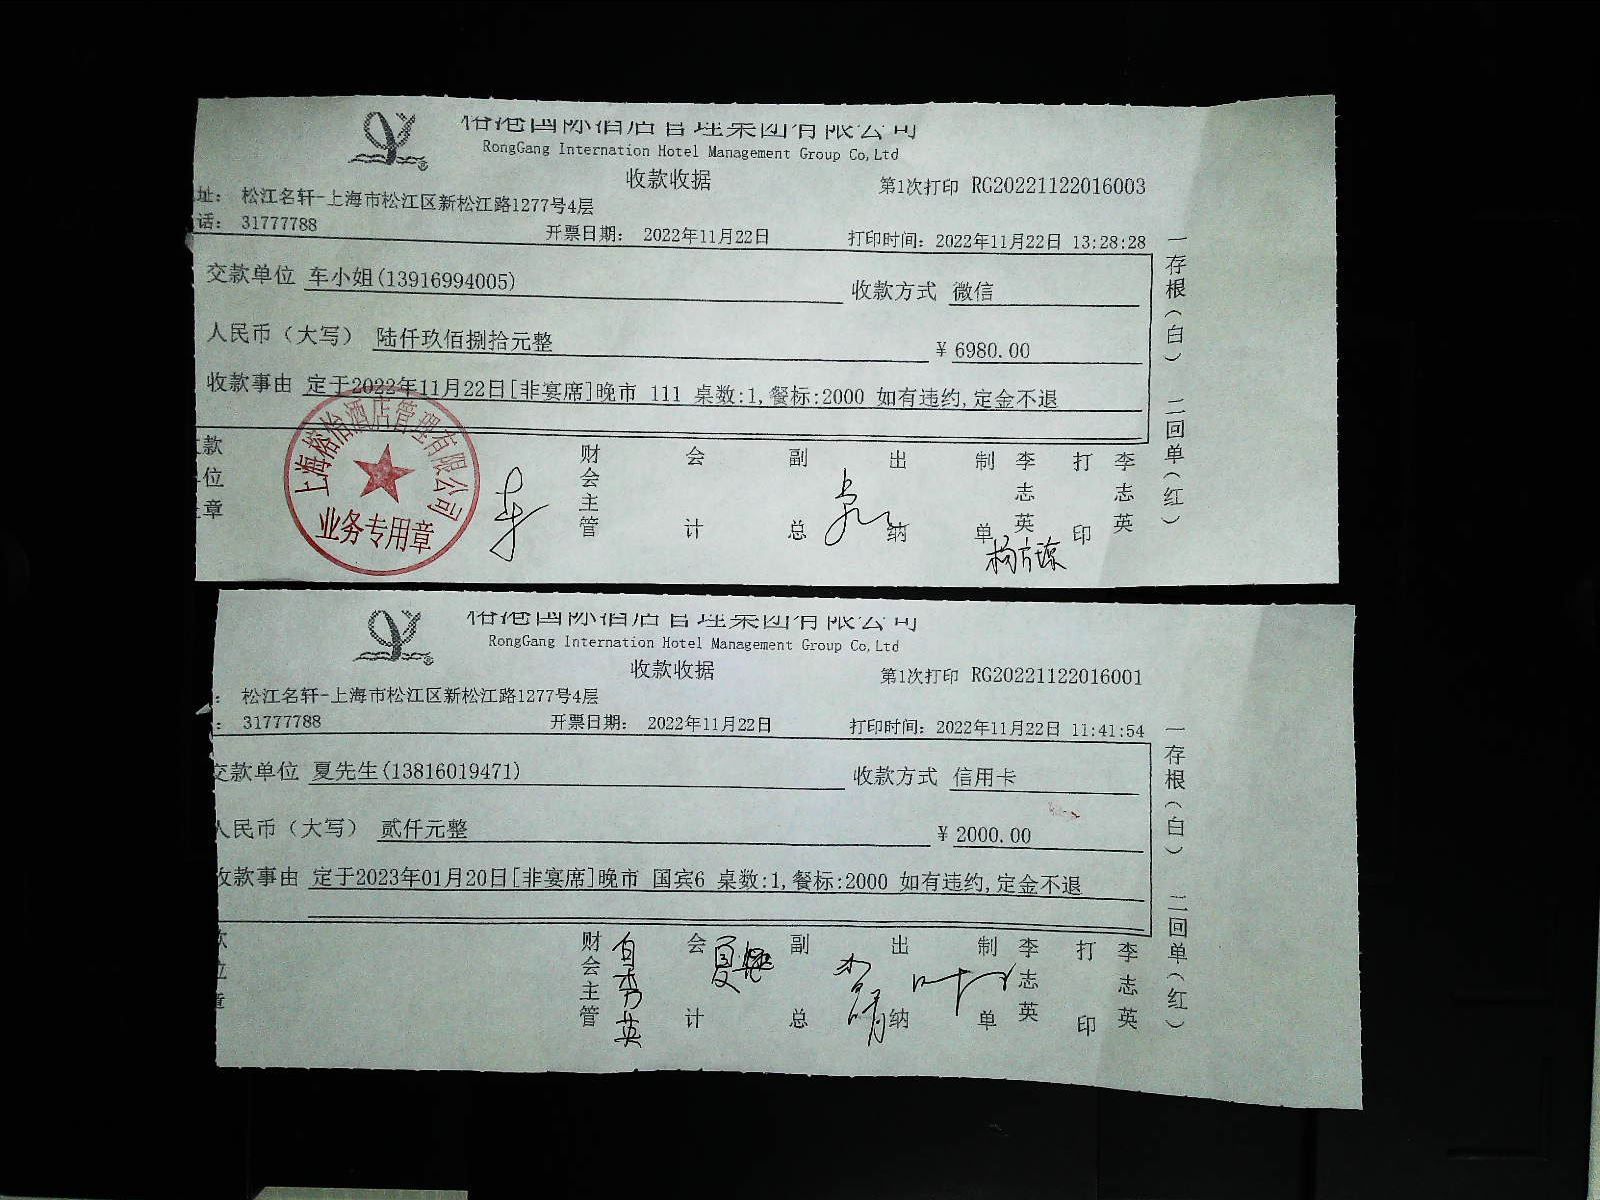 港国际酒店管理集团有限公司
RongGang Internation Hotel Management Group Co,Ltd
收款收据
第1次打印 RG20221122016003
址： 松江名轩-上海市松江区新松江路1277号4层
话： 31777788
开票日期： 2022年11月22日
打印时间：2022年11月22日 13:28:28
交款单位 车小姐(13916994005)
收款方式 微信
人民币（大写） 陆仟玖佰捌拾元整
￥6980.00
收款事由 定于2022年11月22日[非宴席]晚市 111 桌数:1,餐标:2000 如有违约,定金不退
款位章
上海裕怡酒店管理有限公司
业务专用章
车
财会主管
会计
副总
出纳
制单
李志英
打印
李志英
一存根（白） 二回单（红）
港国际酒店管理集团有限公司
RongGang Internation Hotel Management Group Co,Ltd
收款收据
第1次打印 RG20221122016001
： 松江名轩-上海市松江区新松江路1277号4层
： 31777788
开票日期： 2022年11月22日
打印时间：2022年11月22日 11:41:54
交款单位 夏先生(13816019471)
收款方式 信用卡
人民币（大写） 贰仟元整
￥2000.00
收款事由 定于2023年01月20日[非宴席]晚市 国宾6 桌数:1,餐标:2000 如有违约,定金不退
财会主管
会计
夏
副总
出纳
制单
李志英
打印
李志英
一存根（白） 二回单（红）